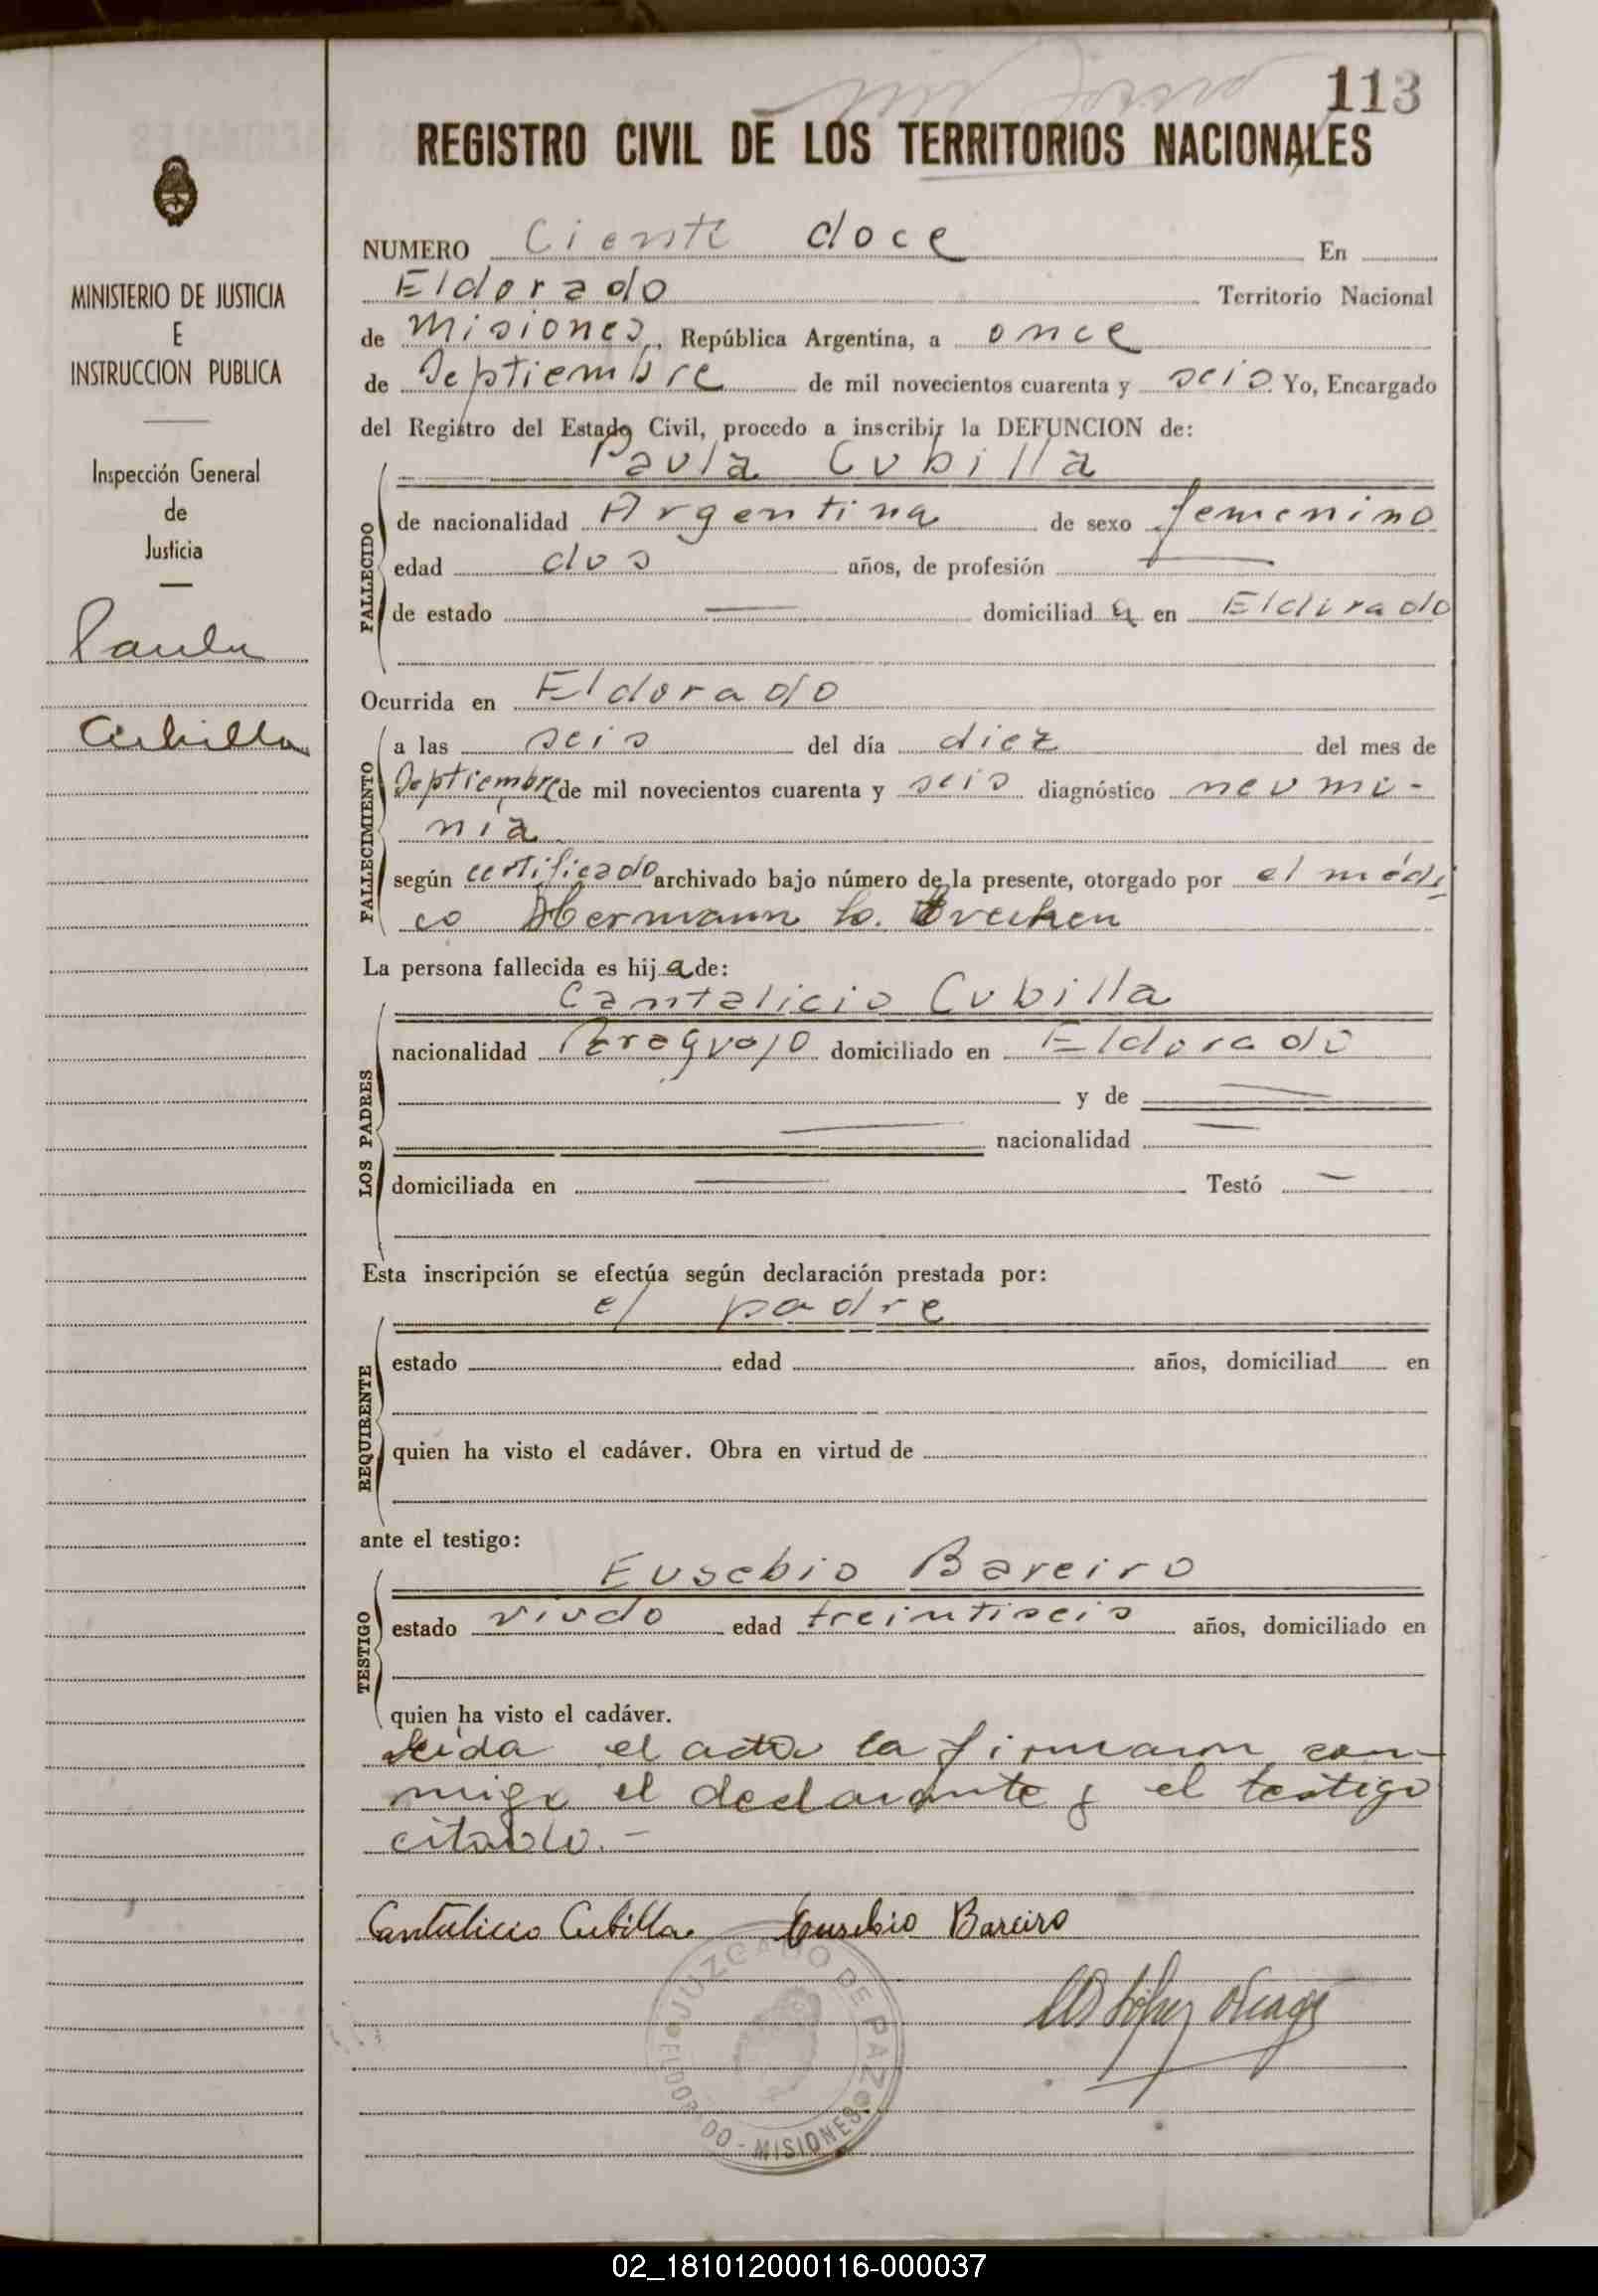 113
REGISTRO CIVIL DE LOS TERRITORIOS NACIONALES
MINISTERIO DE JUSTICIA
E
INSTRUCCION PUBLICA
Inspección General
de
Justicia
Paula
Cubilla
NUMERO Ciento doce En
Eldorado Territorio Nacional
de Misiones, República Argentina, a once
de Septiembre de mil novecientos cuarenta y seis Yo, Encargado
del Registro del Estado Civil, procedo a inscribir la DEFUNCION de:
Paula Cubilla
FALLECIDO
de nacionalidad Argentina de sexo femenino
edad dos años, de profesión —
de estado — domiciliad a en Eldorado
Ocurrida en Eldorado
FALLECIMIENTO
a las seis del día diez del mes de
Septiembre de mil novecientos cuarenta y seis diagnóstico neumo-
nía
según certificado archivado bajo número de la presente, otorgado por el médi
co Hermann
La persona fallecida es hij a de:
Cantalicio Cubilla
LOS PADRES
nacionalidad Paraguayo domiciliado en Eldorado
y de —
— nacionalidad —
domiciliada en — Testó —
Esta inscripción se efectúa según declaración prestada por:
el padre
REQUIRENTE
estado edad años, domiciliad en
quien ha visto el cadáver. Obra en virtud de
ante el testigo:
Eusebio Bareiro
TESTIGO
estado viudo edad treintiseis años, domiciliado en
quien ha visto el cadáver.
Leida el acta la firman con-
migo el declarante y el testigo
citado.-
Cantalicio Cubilla Eusebio Bareiro
JUZGADO DE PAZ
ELDORADO - MISIONES
02_181012000116-000037